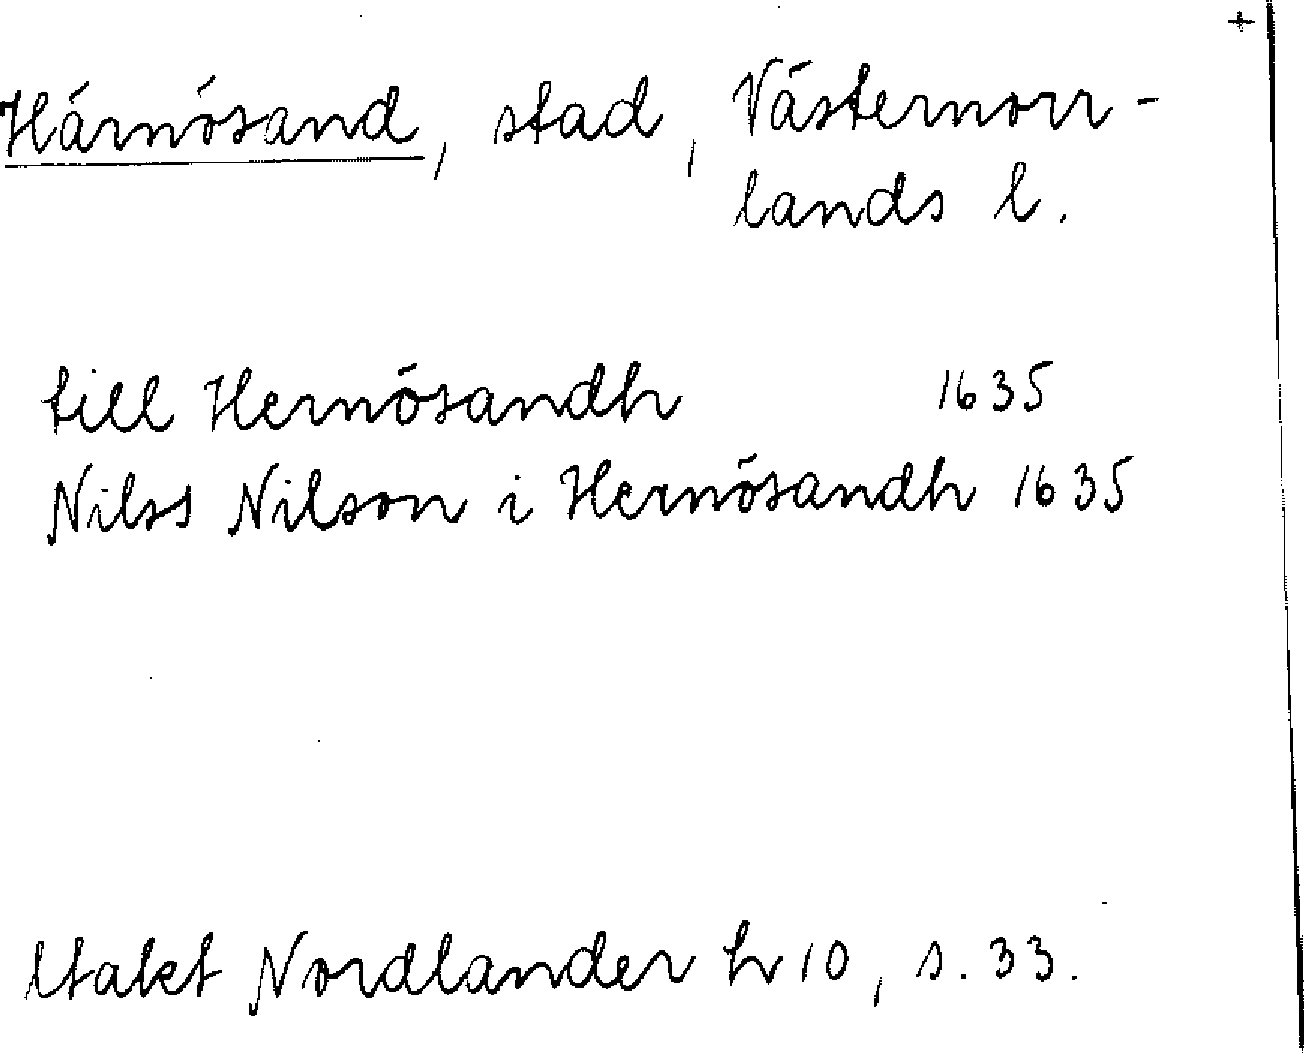 +
Härnösand, stad, Västernorr-
lands l.
till Hernösandh 1635
Nilss Nilson i Hernösandh 1635
Utakt Nordlander h 10, s. 33.